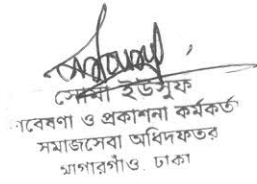 ইউসুফ
গবেষণা ও প্রকাশনা কর্মকর্ত
সমাজসেবা অধিদফতর
আগারগাঁও, ঢাকা